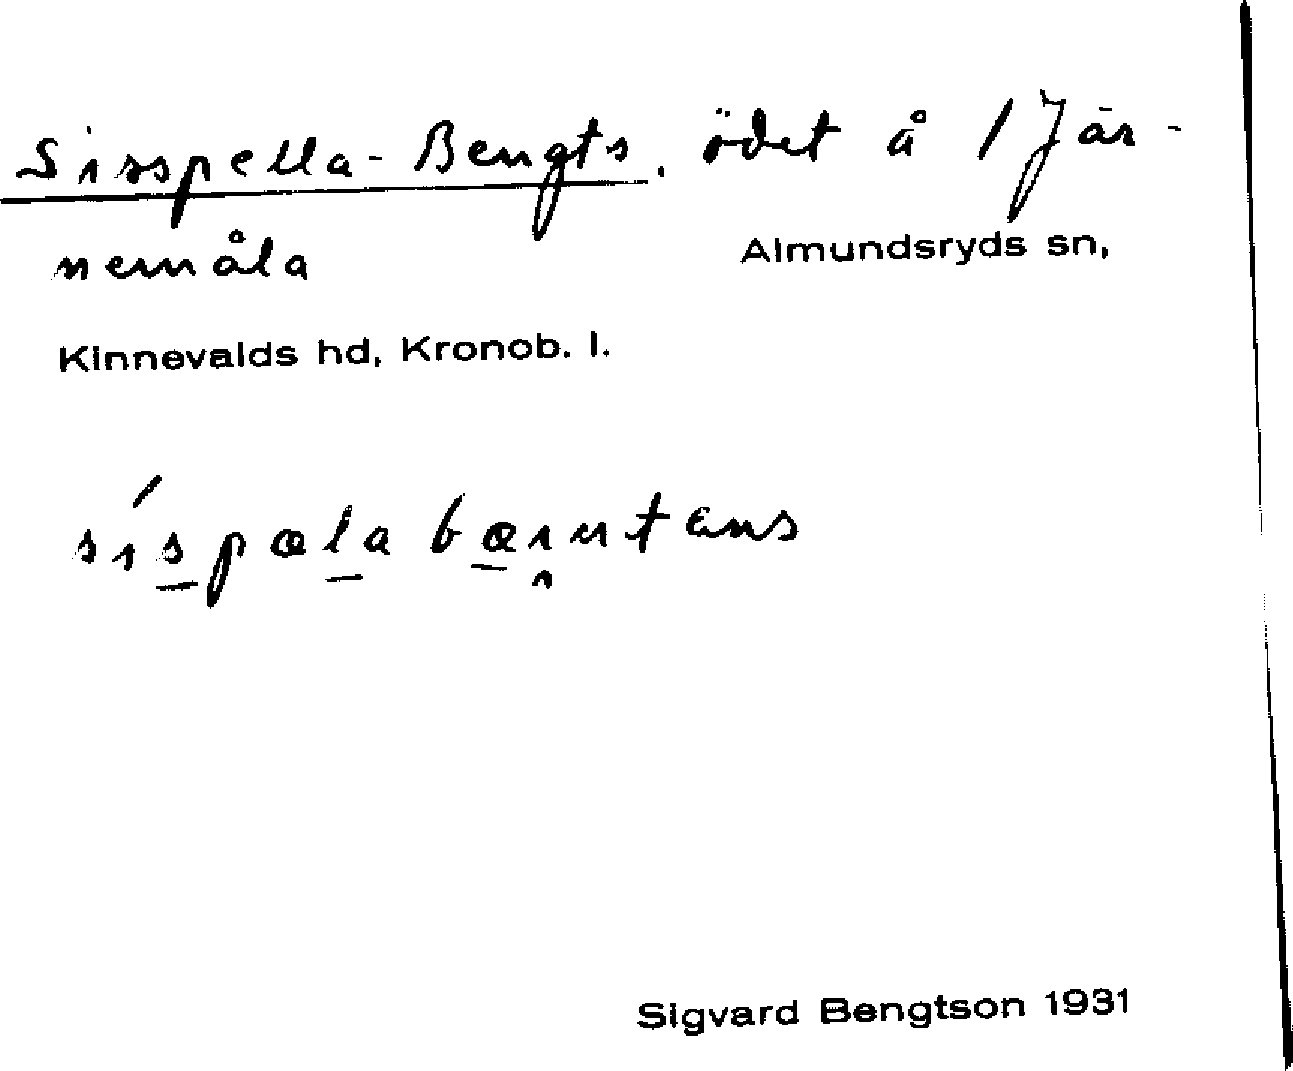 Sisspella-Bengts. ödet å 1 Jär-
nemåla Almundsryds sn,
Kinnevalds hd, Kronob. l.
síspæla
Sigvard Bengtson 1931